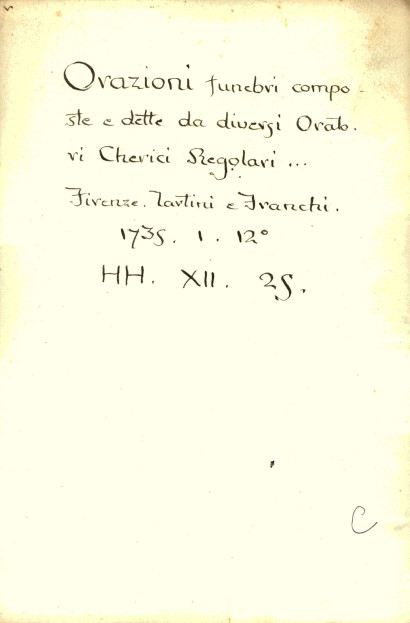 Orazioni funebri compo-
ste e dette da diversi Orato-
ri Cherici Regolari ...
Firenze. Tartini e Franchi.
1735. 1. 12°
HH. XII. 25.
C